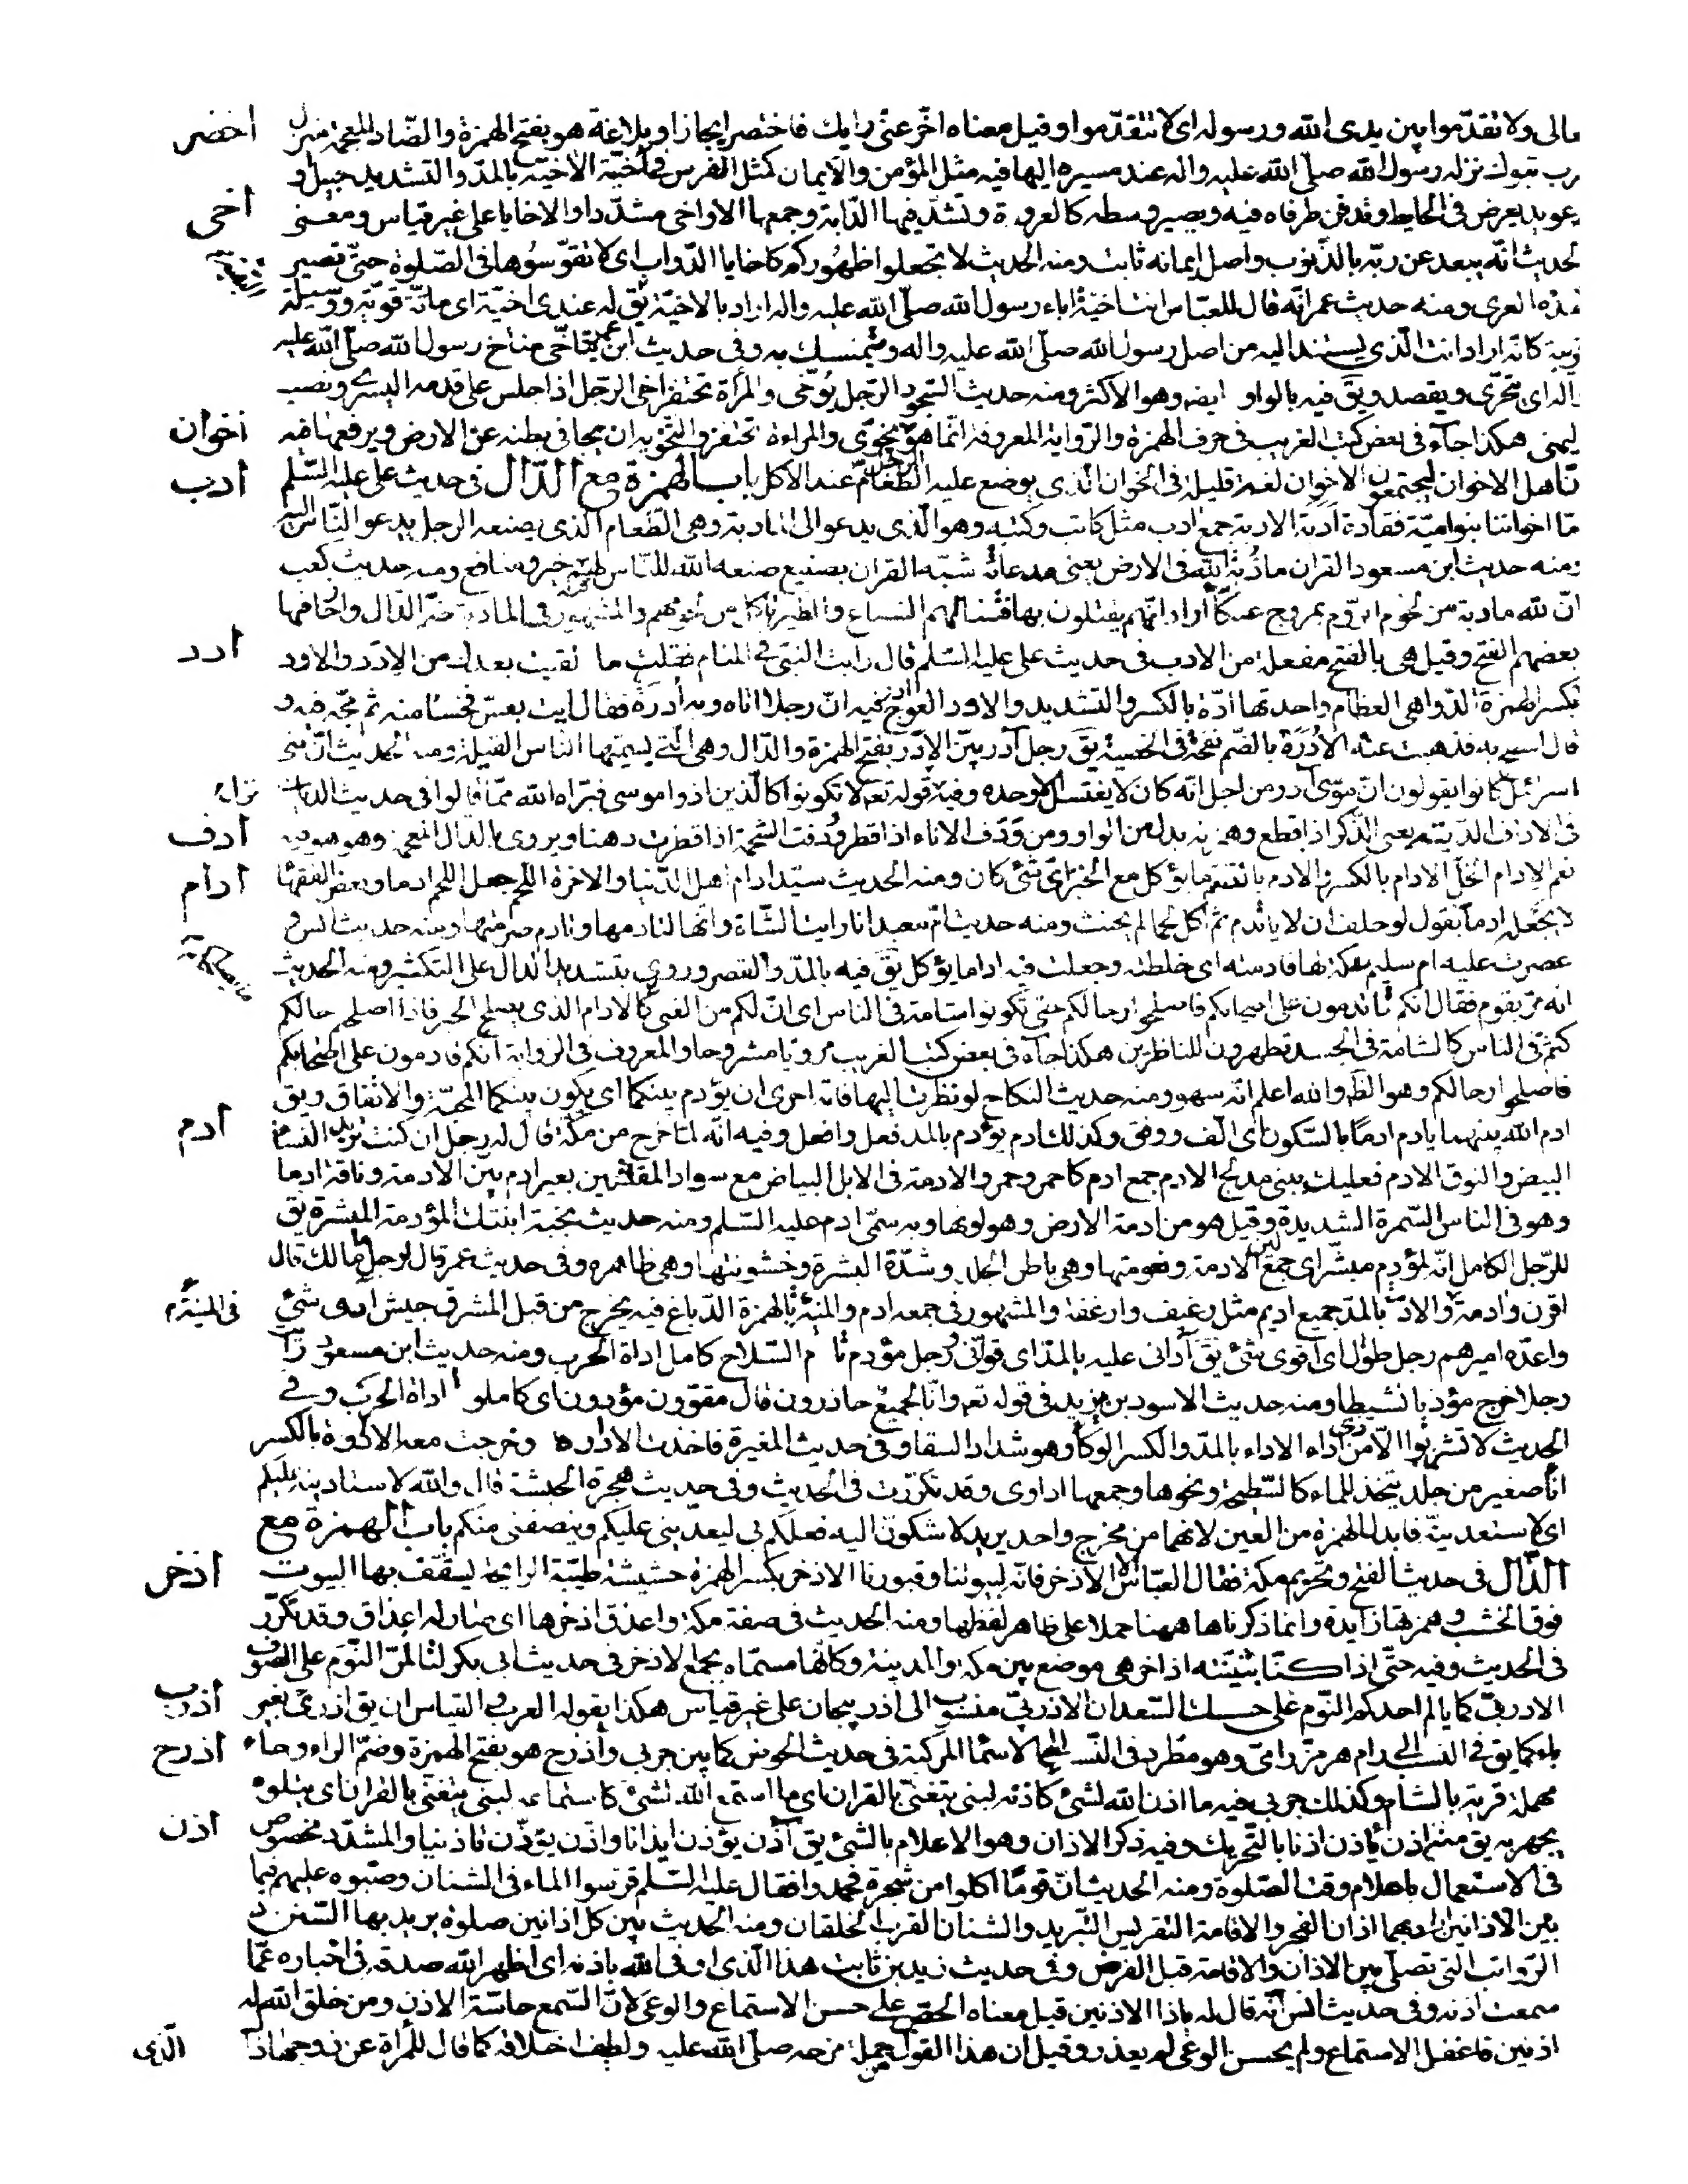 ولا تقدّموا بين يدى الله ورسوله اى لا تتقدّموا وقيل معناه اخّر عنّى رايك فاختصر ايجازا وبلاغة هو بفتح الهمزة والضّاد المعجمة منزل
اخضر
تبوك نزله رسول الله صلّى الله عليه واله عند مسيره اليها فيه مثل المؤمن والايمان كمثل الفرس فى اخيّته الاخيّة بالمدّ والتشديد حبيل او
عويد يعرض فى الحايط وقد فن طرفاه فيه ويصير وسطه كالعروة وتشدّ فيها الدّابة وجمعها الاواخى مشدّدا والاخايا على غير قياس ومعنى
اخى
الحديث انّه يبعد عن ربّه بالذّنوب واصل ايمانه ثابت ومنه الحديث لا تجعلوا ظهوركم كاخايا الدّواب اى لا تقوّسوها فى الصّلوة حتّى تصير
هذه العرى ومنه حديث عمر انّه قال للعبّاس انت اخيّة اباء رسول الله صلّى الله عليه واله اراد بالاخيّة يق له عندى اخيّة اى ماتّة قويّة ووسيلة
قريبة كانّه اراد انت الّذى يستند اليه من اصل رسول الله صلّى الله عليه واله ويتمسك به وفى حديث ابن عمر يتاخّى مناخ رسول الله صلّى الله عليه
واله اى يتحرّى ويقصد ويق فيه بالواو ايضه وهو الاكثر ومنه حديث السّجود الرّجل يؤخّى والمرأة تحتفز اخى الرّجل اذا جلس على قدمه اليسرى ونصب
اليمنى هكذا جآء فى بعض كتب الغريب فى حرف الهمزة والرّواية المعروفة انّما هو يخوّى والمراءة تحتفز والتّخوية ان يجافى بطنه عن الارض ويرفعها فيه
اخوان
اهل الاخوان ليجتمعون الاخوان لغة قليلة فى الخوان الّذى يوضع عليه الطّعام عند الاكل باب الهمزة مع الدّال فى حديث على عليه السّلم
ادب
امّا اخواننا بنوا ميّة فقادة ادبة الادبة جمع ادب مثل كاتب وكتبه وهو الّذى يدعو الى المادبة وهى الطّعام الّذى يصنعه الرجل يدعو النّاس اليه
ومنه حديث ابن مسعود القران مأدبة الله فى الارض يعنى مدعاته شبّه القران بصنيع صنعه الله للنّاس لهم فيه خير ومنافع ومنه حديث كعب
انّ لله مادبة من لحوم الروم بمروج عكّا اراد انّهم يقتلون بها فتنتابهم السباع والطير تاكل من لحومهم والمشهور فى المادبة ضمّ الدّال واجاز فيها
بعضهم الفتح وقيل هى بالفتح مفعلة من الادب فى حديث على عليه السّلم قال رايت النّبى فى المنام فقلت ما لقيت بعدك من الادد والاود
ادد
بكسر الهمزة الدّواهى العظام واحدتها ادّة بالكسر والتشديد والاود العوج فيه انّ رجلا اتاه وبه ادرة فقال ايت بعسّ فحسا منه ثمّ مجّه فيه و
قال انتضح به فذهبت عنه الادرة بالضّم نفخة فى الخصية يق رجل آدر بيّن الادر بفتح الهمزة والدّال وهى الّتى يسميّها الناس القيلة ومنه الحديث انّ بنى
اسرائيل كانوا يقولون انّ موسى آدر من اجل انّه كان لا يغتسل الا وحده وفيه قوله تعه لا تكونوا كالّذين اذوا موسى فبرّاه الله ممّا قالوا فى حديث الديات
فى الاداف الدّية يعنى الذّكر اذا قطع وهمزته بدل من الواو من ودف الاناء اذا قطر ودفت الشحمة اذا قطرت دهنا ويروى بالذّال المعجمة وهو هو فيه
ادف
نعم الادام الخلّ الادام بالكسر والادم بالضّم ما يؤكل مع الخبز اىّ شئ كان ومنه الحديث سيّد ادام اهل الدّنيا والاخرة اللّحم جعل اللحم ادما وبعض الفقهاء
ادام
لا يجعله ادما يقول لو حلف ان لا ياتدم ثمّ اكل لحما لم يحنث ومنه حديث امّ معبد انا رايت الشّاة وانّها لتادمها وتادم صرمتها ومنه حديث انس و
عصرت عليه ام سليم عكّة لها فادمته اى خلطته وجعلت فيه اداما يؤكل يق فيه بالمدّ والقصر وروى بتشديد الدال على التكثير ومنه الحديث
انه مرّ بقوم فقال انّكم تاتدمون على اصحابكم فاصلحوا رحالكم حتّى تكونوا شامة فى الناس اى انّ لكم من الغنى كالادام الذى يصلح الخبز فاذا اصلحتم حالكم
كنتم فى الناس كالشامة فى الجسد تظهرون للناظرين هكذا جآء فى بعض كتب الغريب مرويّا مشروحا والمعروف فى الرّواية انّكم قادمون على اصحابكم
فاصلحوا رحالكم وهو الظّه والله اعلم انّه سهو ومنه حديث النكاح لو نظرت اليها فانّه احرى ان يؤدم بينكما اى يكون بينكما المحبّة والاتّفاق ويق
ادم الله بينهما يادم ادما بالسّكون اى الّف ووفق وكذلك ادم يؤدم بالمد فعل وافعل وفيه انّه لمّا خرج من مكّة قال له رجل ان كنت تريد النساء
ادم
البيض والنوق الادم فعليك ببنى مدلج الادم جمع ادم كاحمر وحمر والادمة فى الابل البياض مع سواد المقلتين بعير ادم بيّن الادمة وناقة ادما
وهو فى الناس السّمرة الشديدة وقيل هو من ادمة الارض وهو لونها وبه سمّى ادم عليه السّلم ومنه حديث نجبة ابنتك المؤدمة المبشرة يق
للرّجل الكامل انّه لمؤدم مبشر اى جمع لين الادمة ونعومتها وهى باطن الجلد وشدّة البشرة وخشونتها وهى ظاهره وفى حديث عمر قال لرجل ما مالك قال
اقرن وادمة والادمة بالمدّ جميع اديم مثل رغيف وارغفة والمشهور فى جمعه ادم والمنيئة بالهمزة الدّباغ فيه يخرج من قبل المشرق جيش ادى شئ
فى المنيئة
واعدّه اميرهم رجل طوال اى اقوى شئ يق آدانى عليه بالمدّ اى قوّانى ورجل مؤدم تام السّلاح كامل اداة الحرب ومنه حديث ابن مسعود
رجلا خرج مؤديا نشيطا ومنه حديث الاسود بن يزيد فى قوله تعه وانّا لجميع حاذرون قال مقوّون مؤدون اى كاملوا اداة الحرب وفى
الحديث لا تشربوا الّا من ذى اداء الاداء بالمدّ والكسر الوكاء وهو شداد السقاء وفى حديث المغيرة فاخذت الاداوة وخرجت معه الاداوة بالكسر
اناء صغير من جلد يتخذ للماء كالسّطيحة ونحوها وجمعها اداوى وقد تكرّرت فى الحديث وفى حديث هجرة الحبشة قال والله لاستادينه عليكم
اى لاستعدينّه فابدل الهمزة من العين لانهما من مخرج واحد يريد لاشكونّ اليه فعلكم بى ليعدينى عليكم وينصفنى منكم باب الهمزة مع
الذّال فى حديث الفتح وتحريم مكة فقال العبّاس الا الاذخر فانّه لبيوتنا وقبورنا الاذخر بكسر الهمزة حشيشة طيّبة الرايحة ليسقّف بها البيوت
اذخر
فوق الخشب وهمزتها زايدة وانما ذكرناها ههنا حملا على ظاهر لفظها ومنه الحديث فى صفة مكة واعذق اذخرها اى صار له اعذاق وقد تكرّر
فى الحديث وفيه حتّى اذا كنّا بثنيّته اذاخر هى موضع بين مكة والمدينة وكانّها مسمّاة بجمع الاذخر فى حديث ابى بكر لتالمنّ النّوم على الصّوف
الاذربىّ كما يالم احدكم النّوم على حسك السّعدان الاذربىّ منسوب الى اذربيجان على غير قياس هكذا يقوله العرب والقياس ان يق اذرى بغير
اذرب
باء كما يق فى النسب الى رام هرمز رامىّ وهو مطّرد فى النّسب الى الاسماء المركبة فى حديث الحوض كما بين جربى واذرح هو بفتح الهمزة وضمّ الراء وحاء
اذرح
مهملة قرية بالشام وكذلك جربى فيه ما اذن الله لشئ كاذنه لنبى يتغنّى بالقران اى ما استمع الله لشئ كاستماعه لنبى يتغنّى بالقران اى يتلوه
يجهر به يق منه اذن ياذن اذنا بالتّحريك وفيه ذكر الاذان وهو الاعلام بالشئ يق آذن يؤذن ايذانا واذّن يؤذّن تاذينا والمشدّد مخصوص
اذن
فى الاستعمال باعلام وقت الصّلوة ومنه الحديث انّ قوما اكلوا من شجرة فجمدوا فقال عليه السّلم قرّسوا الماء فى الشنان وصبّوه عليهم فيما
بين الاذانين اراد بهما اذان الفجر والاقامة التقريس التّبريد والشنان القرب الخلقان ومنه الحديث بين كل اذانين صلوة يريد بها السّنن
الرّواتب التى تصلّى بين الاذان والاقامة قبل الفرض وفى حديث زيد بن ثابت هذا الّذى اوفى الله باذنه اى اظهر الله صدقه فى اخباره عمّا
سمعت اذنه وفى حديث انس انّه قال له ياذا الاذنين قيل معناه الحضّ على حسن الاستماع والوعى لانّ السّمع حاسّة الاذن ومن خلق الله له
اذنين فاغفل الاستماع ولم يحسن الوعى لم يعذر وقيل ان هذا القول من جملة مزحه صلّى الله عليه ولطيف اخلاقه كما قال للمرأة عن زوجها ذاك
الّذى